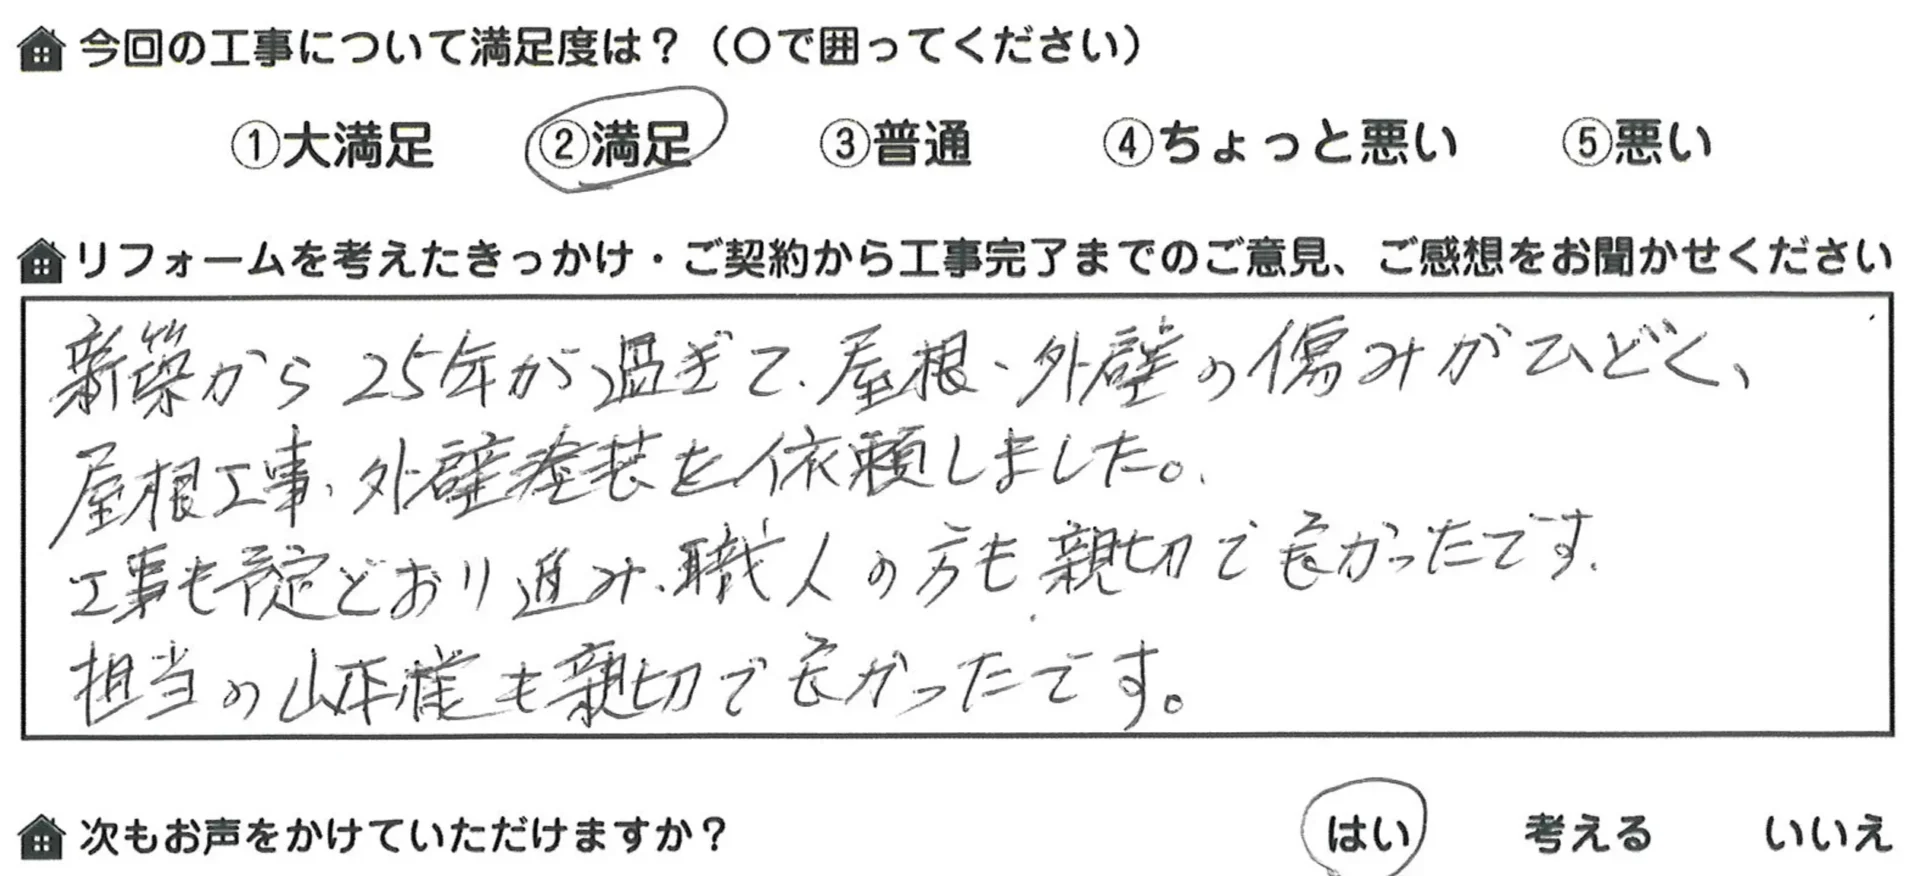 今回の工事について満足度は？（〇で囲ってください）
①大満足 ②満足 ③普通 ④ちょっと悪い ⑤悪い
リフォームを考えたきっかけ・ご契約から工事完了までのご意見、ご感想をお聞かせください
新築から25年が過ぎて、屋根、外壁の傷みがひどく、
屋根工事、外壁塗装を依頼しました。
工事も予定どおり進み、職人の方も親切で良かったです。
担当の山本様も親切で良かったです。
次もお声をかけていただけますか？ はい 考える いいえ